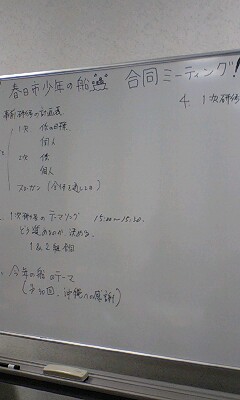 春日市少年の船 合同ミーティング!
事前研修の計画表
1次 係の目標
個人
2次 係
個人
スローガン (全体を通しての)
1次研修のテーマソング 15:00〜15:30
どう進めるのか、決める。
1&2組
今年の船のテーマ
(30回、沖縄への感謝)
4. 1次研修